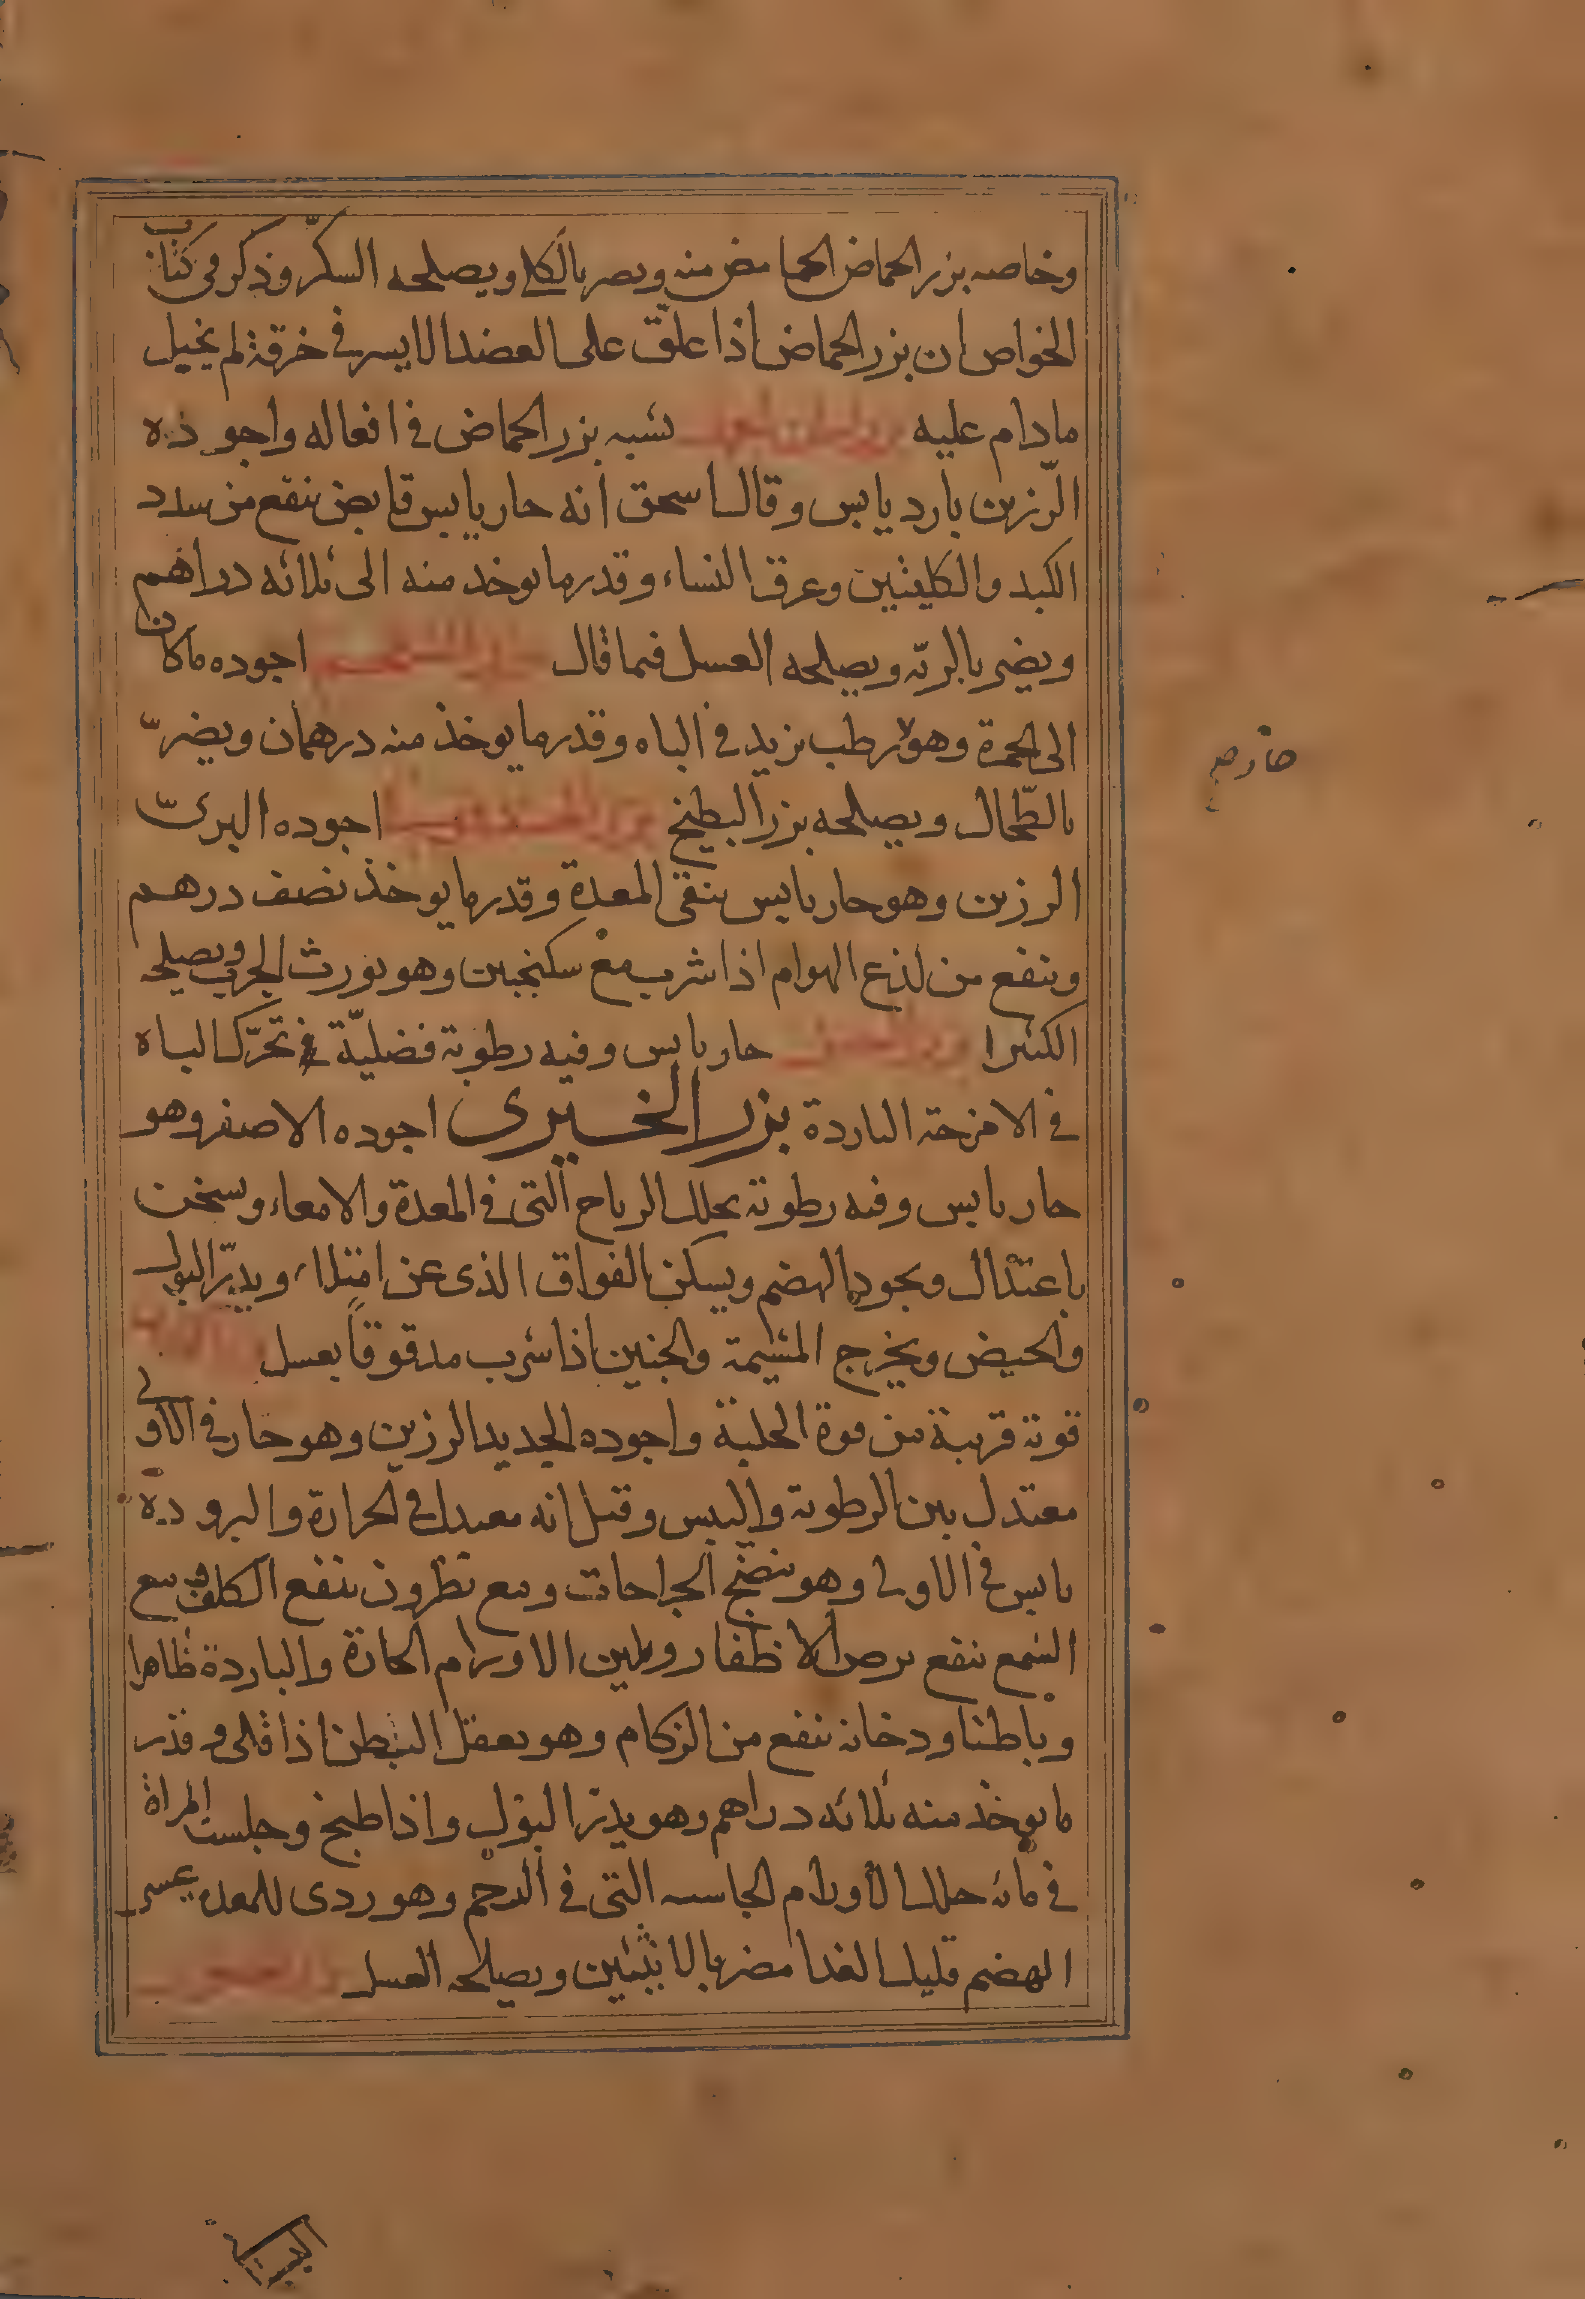 وخاصه بزر الحماض الحامض منه ويضر بالكلي ويصلحه السكر وذكر في كتاب
الخواص ان بزر الحماض اذا علق على العضد الايسر في خرقة لم يحبل
مادام عليه يشبه بزر الحماض في افعاله واجوده
الرزين بارد يابس وقال اسحق انه حار يابس قابض ينفع من سدد
الكبد والكليتين وعرق النساء وقدر ما يوخذ منه الى ثلاثه دراهم
ويضر بالريه ويصلحه العسل فيما قال اجوده ماكان
الى الحمرة وهو رطب يزيد في الباه وقدر ما يوخذ منه درهمان ويضر
بالطحال ويصلحه بزر البطيخ اجوده البري
الرزين وهو حار يابس ينقي المعدة وقدر ما يوخذ نصف درهم
وينفع من لذع الهوام اذا شرب مع سكنجبين وهو يورث الجرب ويصلحه
الكثيرا حار يابس وفيه رطوبة فضلية تحرك الباه
في الامزجة الباردة بزر الخيرى اجوده الاصفر وهو
حار يابس وفيه رطوبة يحلل الرياح التي في المعدة والامعاء ويسخن
باعتدال ويجود الهضم ويسكن الفواق الذى عن امتلاء ويدر البول
والحيض ويخرج المشيمة والجنين اذا شرب مدقوقا بعسل
قوته قريبة من قوة الحلبة واجوده الجديد الرزين وهو حار في الاولى
معتدل بين الرطوبة واليبس وقيل انه معتدل في الحرارة والبرودة
يابس في الاولى وهو ينضج الجراحات ومع نطرون ينفع الكلف ومع
الشمع ينفع برص الاظفار ويلين الاورام الحارة والباردة ظاهرا
وباطنا ودخانه ينفع من الزكام وهو يعقل البطن اذا قلى وقدر
ما يوخذ منه ثلاثه دراهم وهو يدر البول واذا طبخ وجلست المراة
في مائه حلل الاورام الجاسيه التي في الرحم وهو ردى للمعده عسر
الهضم قليل الغذا مضر بالانثيين ويصلحه العسل